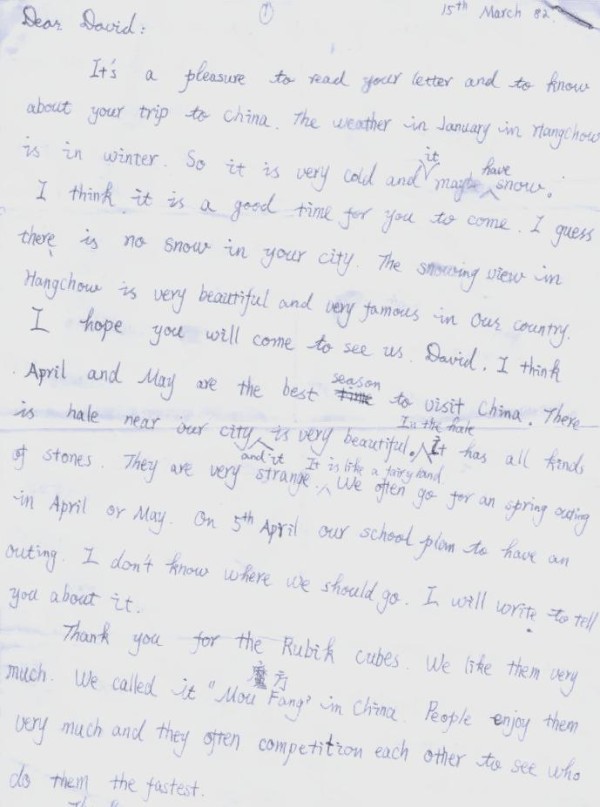 ①
15th March 82.
Dear David:
It's a pleasure to read your letter and to know
about your trip to China. The weather in January in Hangchow
is in winter. So it is very cold and it may have snow.
I think it is a good time for you to come. I guess
there is no snow in your city. The snowing view in
Hangchow is very beautiful and very famous in our country.
I hope you will come to see us. David. I think
April and May are the best season to visit China. There
is hale near our city and it is very beautiful. In the hale it has all kinds
of stones. They are very strange. It is like a fairyland We often go for an spring outing
in April or May. On 5th April our school plan to have an
outing. I don't know where we should go. I will write to tell
you about it.
Thank you for the Rubik cubes. We like them very
much. We called it "Mou Fang" 魔方 in China. People enjoy them
very much and they often competition each other to see who
do them the fastest.